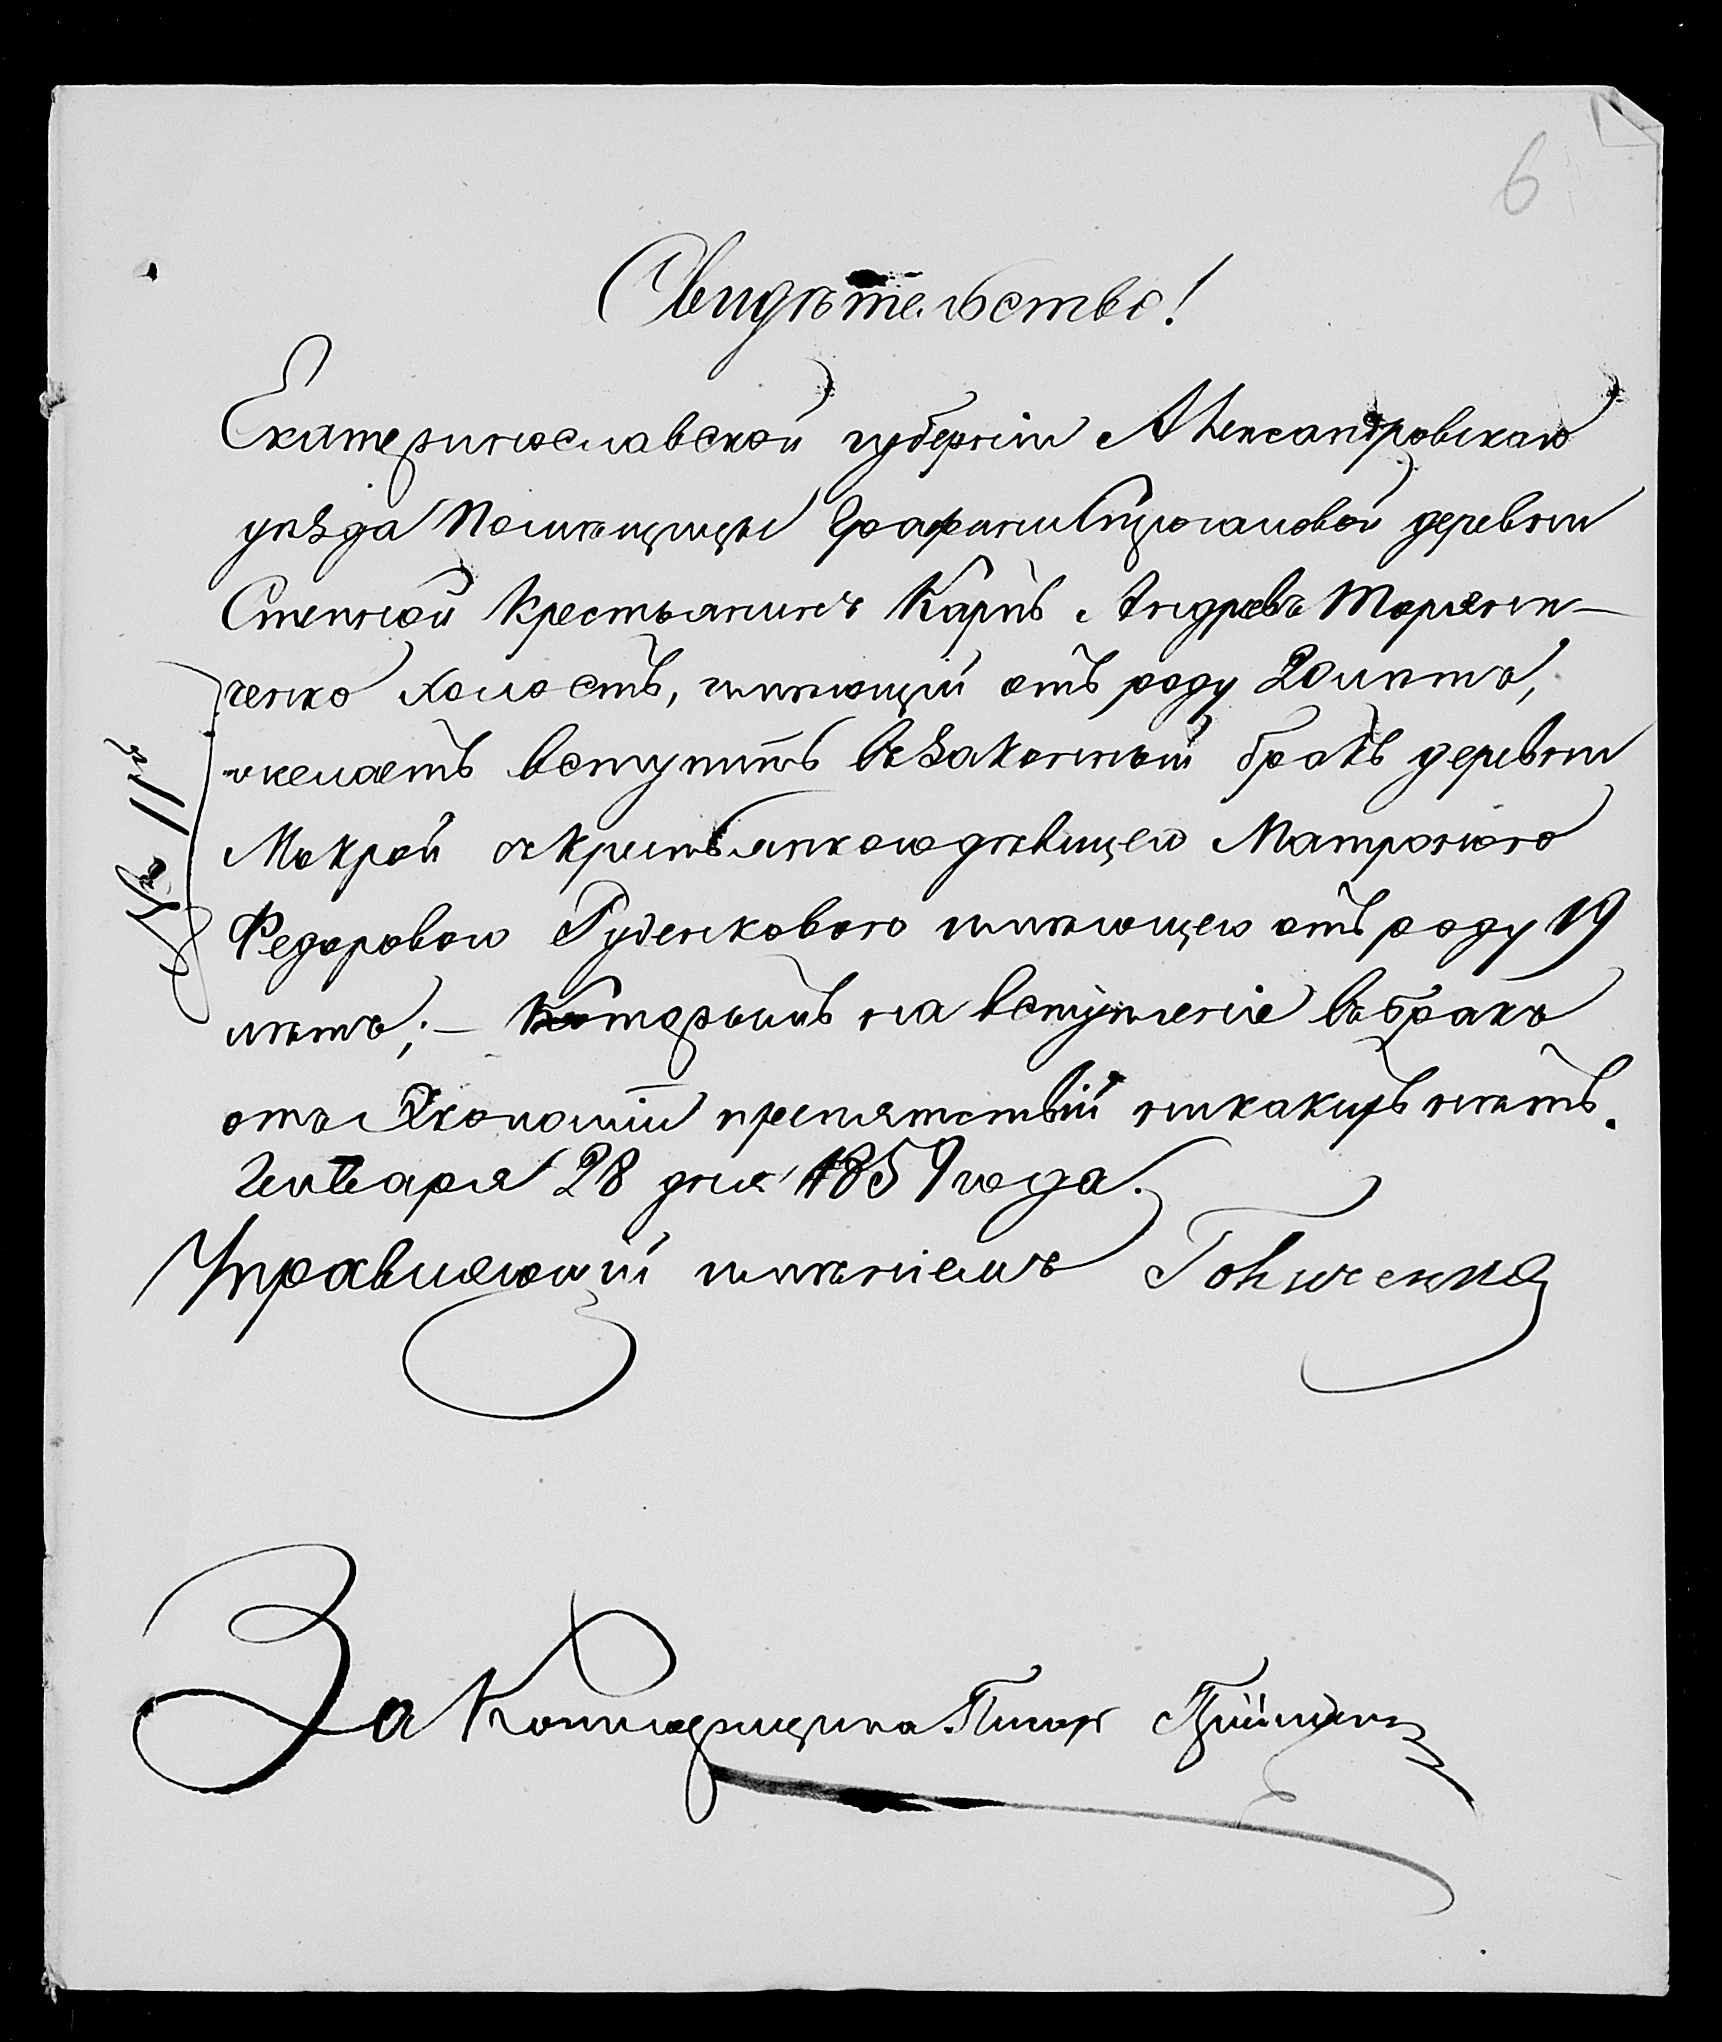 6
Свидѣтельство!
Екатеринославской губерніи Александровскаго
уѣзда Помѣщицы Графини Строгановой деревни
Степной Крестьянинъ Карпъ Андреевъ
ченко холостъ, имѣющій отъ роду 20 лѣтъ,
желаетъ вступить въ законный бракъ деревни
Мокрой съ крестьянкою дѣвицею Матроною
Федоровою Руденковою имѣющею отъ роду 19
лѣтъ; — которымъ на вступленіе въ бракъ
отъ Экономіи препятствій никакихъ нѣтъ.
Генваря 28 дня 1859 года.
Управляющій имѣніемъ
№ 11й
За Конторщика Писарь